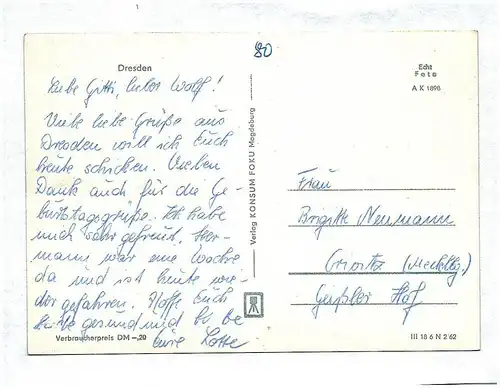 80
Dresden
Echt
Foto
A K 1898
Liebe Gitti, lieber Wolf!
Viele liebe Grüße aus
Dresden will ich Euch
heute schicken. Vielen
Dank auch für die Ge-
burtstagsgrüße. Ich habe
mich sehr gefreut. Her-
mann war eine Woche
da und ist heute wie-
der gefahren. Hoffe Euch
gesund und
Eure Lotte
Verbraucherpreis DM –,20
Verlag KONSUM FOKU Magdeburg
Frau
Brigitte Neumann
Crivitz (Mecklbg.)
Geißler Hof
III 18 6 N 2 62